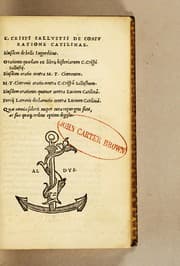 C. CRISPI SALLVSTII DE CONIV
RATIONE CATILINAE.
Eiusdem de bello Iugurthino.
Orationes quædam ex libris historiarum C. Crispi
Sallustij.
Eiusdem oratio contra M. T. Ciceronem.
M. T. Ciceronis oratio contra C. Crispum Sallustium.
Eiusdem orationes quatuor contra Lucium Catilinam.
Porcij Latronis declamatio contra Lucium Catilinam.
JOHN CARTER BROWN
AL DVS